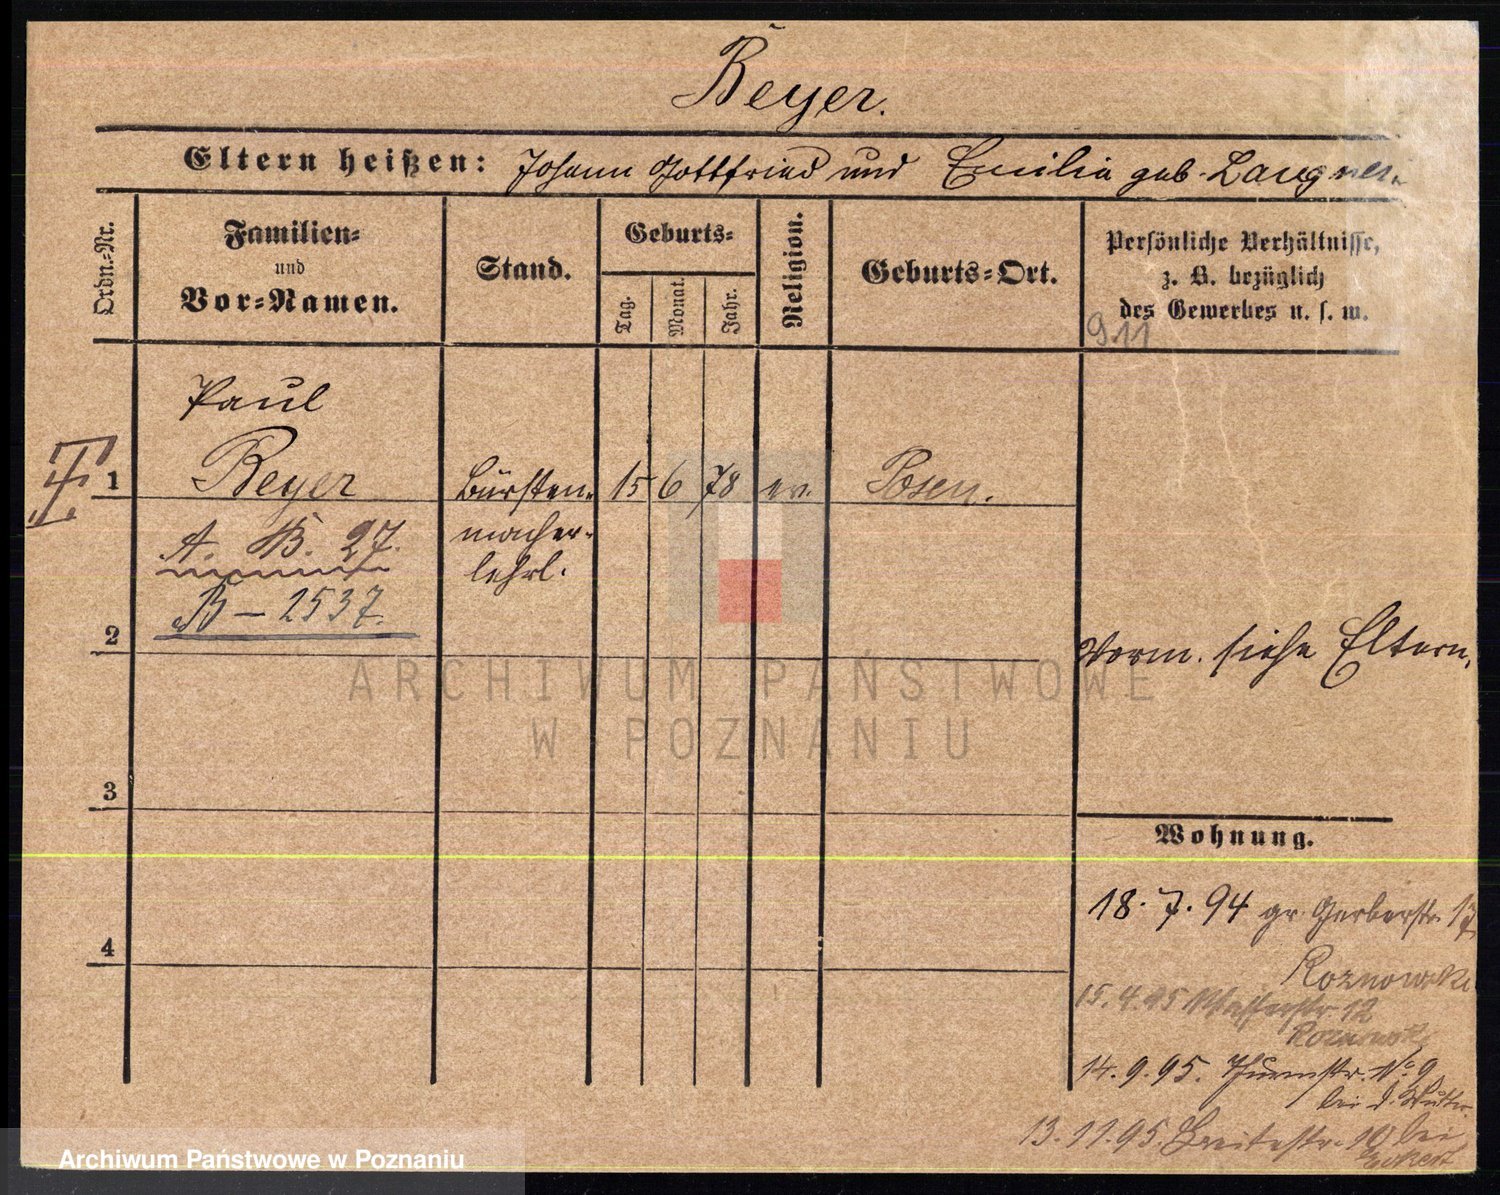 Beyer.
Eltern heißen: Johann Gottfried und Emilia geb. Langner
Ordn.-Nr.
Familien-
und
Vor-Namen.
Stand.
Geburts-
Tag.
Monat.
Jahr.
Religion.
Geburts-Ort.
Persönliche Verhältnisse,
z. B. bezüglich
des Gewerbes u. s. w.
9.11
Paul
1 Beyer Bürsten- 15 6 78 ev. Posen.
macher-
lehrl.
A. B. 27.
B - 2537.
2
Vorm. siehe Eltern.
3
Wohnung.
18.7.94 gr. Gerberstr. 17
Roznowski
4
15.4.95 Wasserstr 12
Roznowski
14.9.95. Thurmstr. No. 9
bei d. Mutter
13.11.95. Breitestr. 10 bei
Eckert
ARCHIWUM PAŃSTWOWE
W POZNANIU
Archiwum Państwowe w Poznaniu